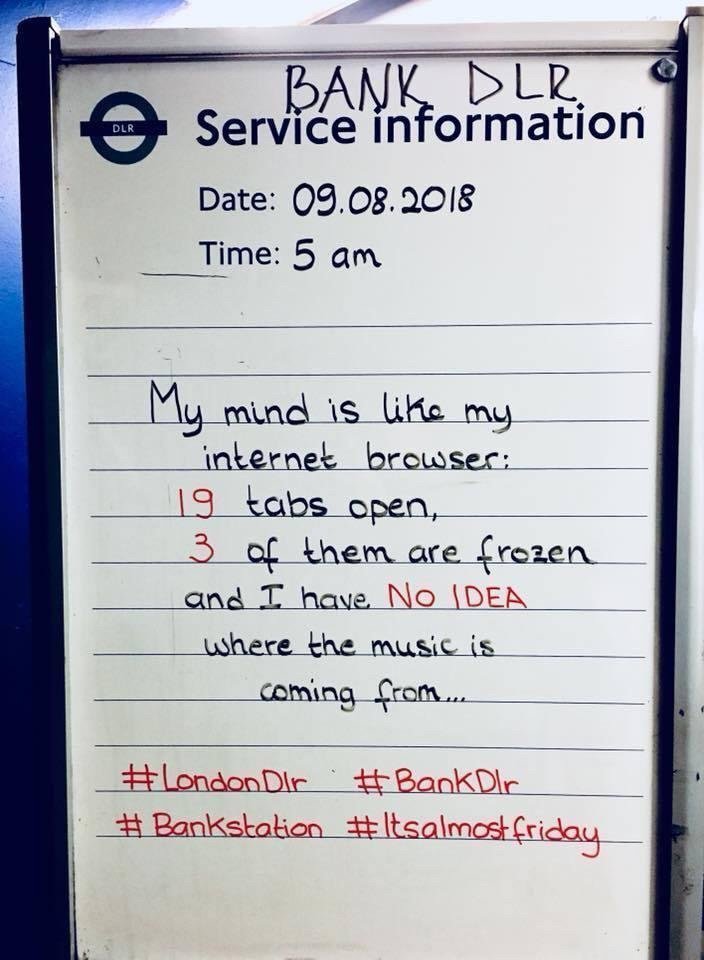 BANK DLR
DLR
Service information
Date: 09.08.2018
Time: 5 am
My mind is like my
internet browser:
19 tabs open,
3 of them are frozen
and I have NO IDEA
where the music is
coming from...
#LondonDlr #BankDlr
#Bankstation #Itsalmostfriday